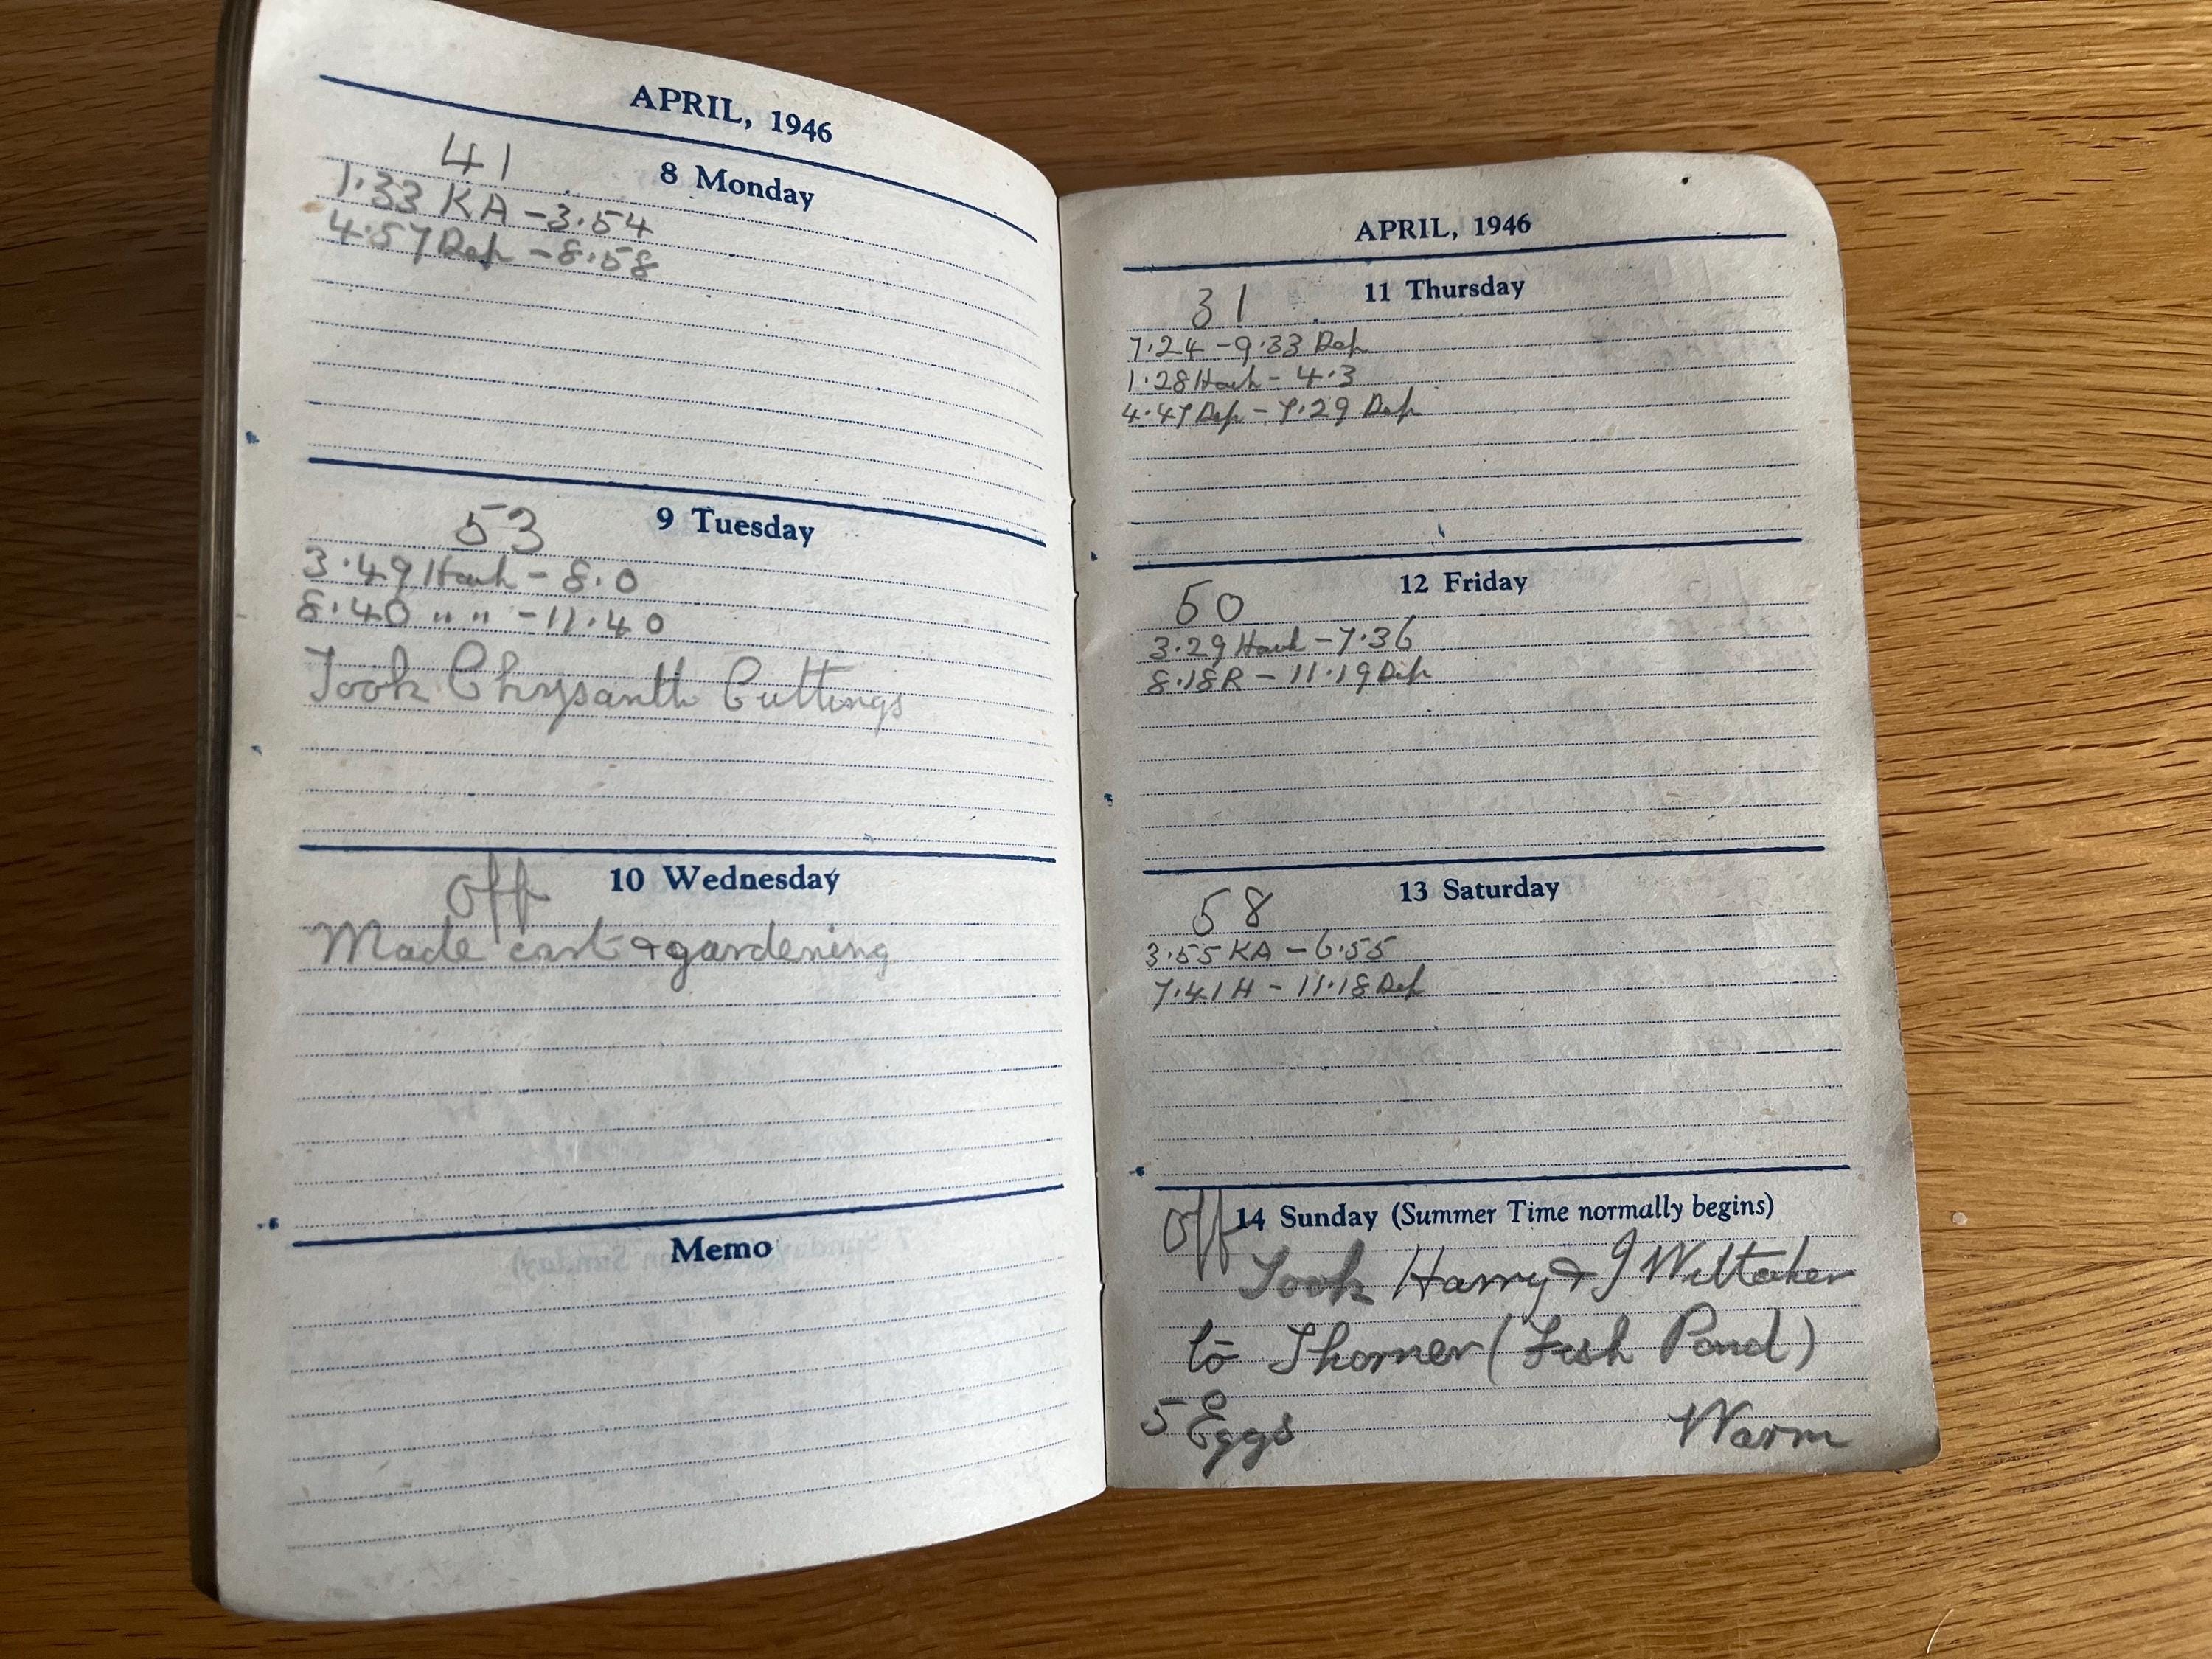 APRIL, 1946
41 8 Monday
1.33 KA - 3.54
4.57 Dep - 8.58
53 9 Tuesday
3.49 Hawk - 8.0
8.40 " " - 11.40
Took Chrysanth Cuttings
Off 10 Wednesday
Made cart & gardening
Memo
APRIL, 1946
31 11 Thursday
7.24 - 9.33 Dep
1.28 Hawk - 4.3
4.47 Dep - 7.29 Dep
12 Friday
50
3.29 Hawk - 7.36
8.18 R - 11.19 Dep
13 Saturday
58
3.55 KA - 6.55
7.41 H - 11.18 Dep
Off 14 Sunday (Summer Time normally begins)
Took Harry & J Wittaker
to Thorner (Fish Pond)
5 Eggs Warm